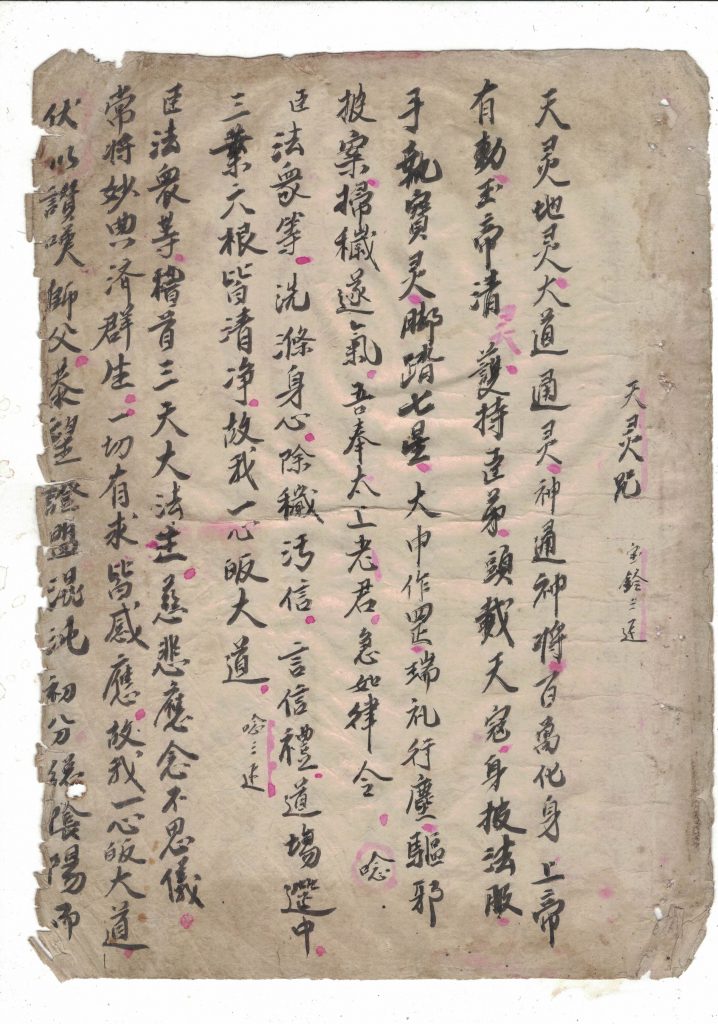 天灵咒 宝鈴三送
天灵地灵大道通灵神通神将百萬化身上帝
有動玉帝清灵護持臣弟頭載天冠身披法服
手執寶灵脚踏七星大申作罡瑞礼行塵驅邪
披案掃穢遂氣吾奉太上老君急如律令 唸
臣法眾等洗滌身心除穢汚信言信禮道場選中
三業六根皆清净故我一心皈大道 唸三送
臣法眾等稽首三天大法主慈悲應念不思儀
常将妙典済群生一切有求皆感應故我一心皈大道
伏以讚嘆師父恭望證盟混沌初分 陰陽而